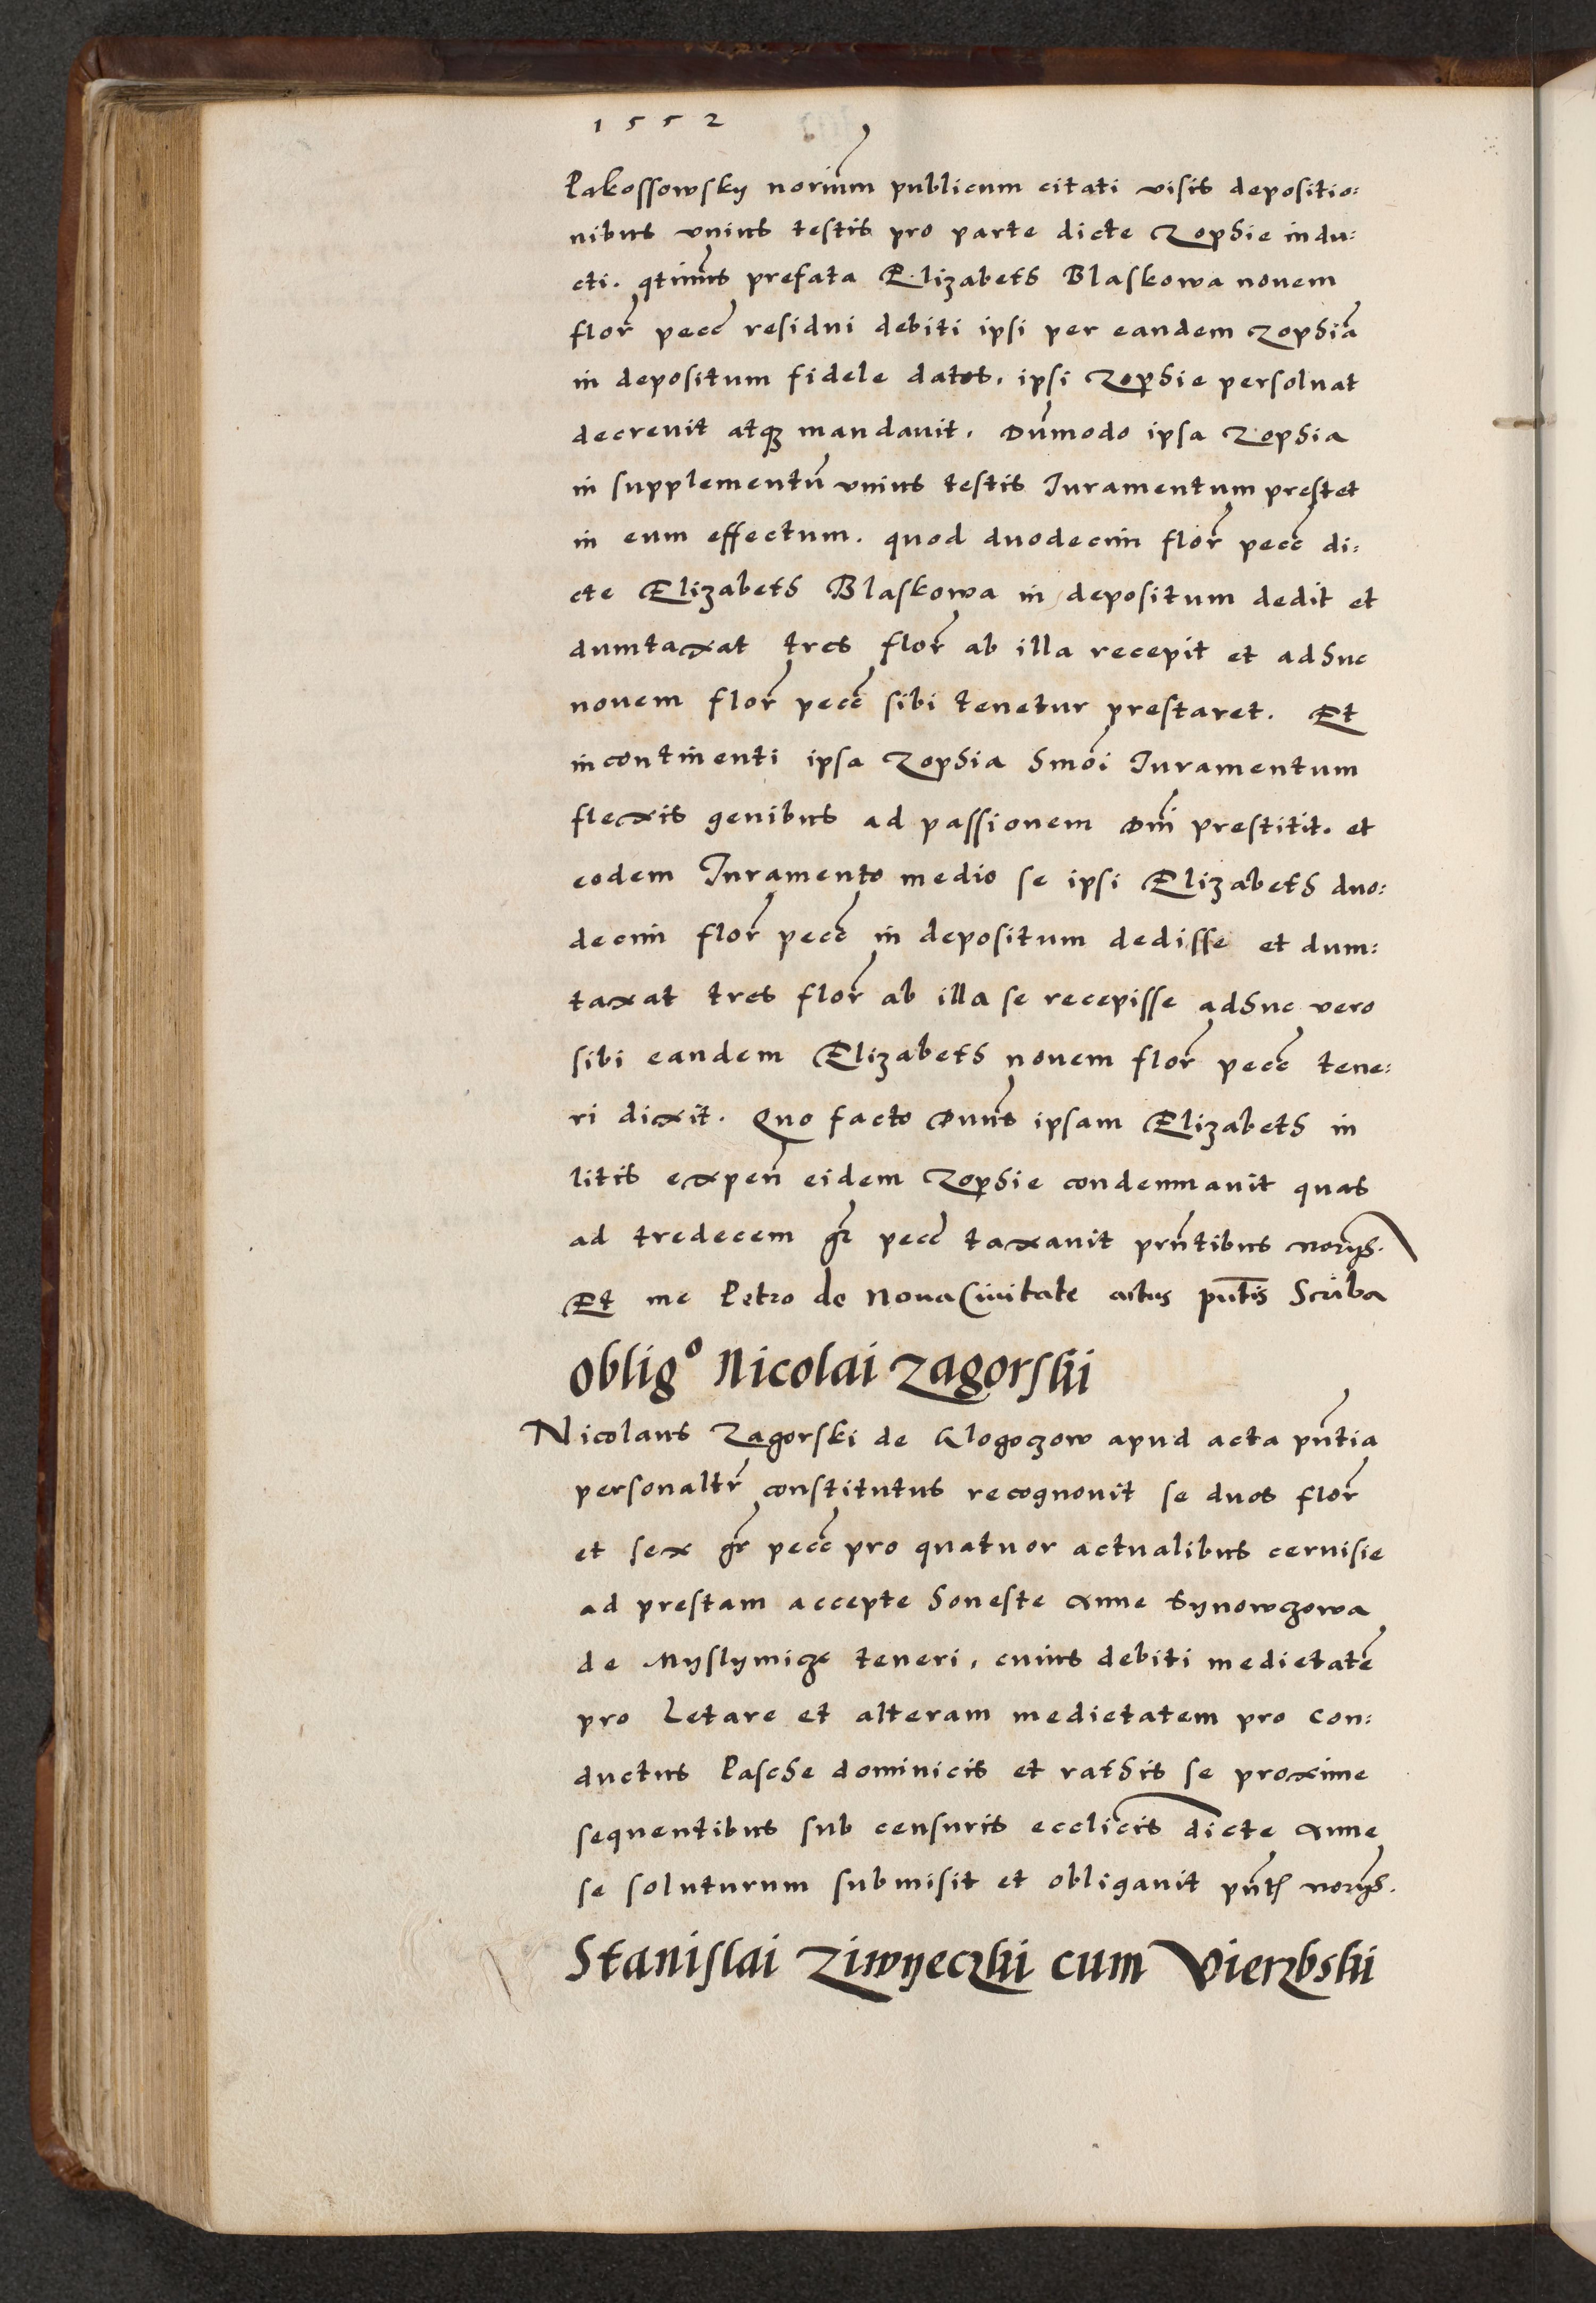 1552
Pakossowskij norium publicum citati visis depositio:
nibus unius testis pro parte dicte Zophie indu:
cti. qtinus prefata Elizabeth Blaskowa novem
flor pecc residui debiti ipsi per eandem Zophiā
in depositum fidele datos. ipsi Zophie persolvat
decrevit atq mandavit. Dūmodo ipsa Zophia
in supplementū unius testis Juramentum prestet
in eum effectum. quod duodecim flor pecc di:
cte Elizabeth Blaskowa in depositum dedit et
dumtaxat tres flor ab illa recepit et adhuc
novem flor pecc sibi tenetur prestaret. Et
incontinenti ipsa Zophia hmōi Juramentum
flexis genibus ad passionem Dni prestitit. et
eodem Juramento medio se ipsi Elizabeth duo:
decim flor pecc in depositum dedisse et dum:
taxat tres flor ab illa se recepisse adhuc vero
sibi eandem Elizabeth novem flor pecc tene:
ri dixit. Quo facto Dnus ipsam Elizabeth in
litis expen eidem Zophie condemnavit quas
ad tredecem gr pecc taxavit prntibus norijs.
Et me Petro de Nova Civitate actus pntis Scriba
Oblig° Nicolai Zagorski
Nicolaus Zagorski de Glogoczow apud acta pntia
personaltr constitutus recognovit se duos flor
et sex gr pecc pro quatuor actualibus cervisie
ad prestam accepte honeste Anne Synowczowa
de Myslymicze teneri, cuius debiti medietatē
pro Letare et alteram medietatem pro Con:
ductus Pasche dominicis et rathis se proxime
sequentibus sub censuris ecclicis dicte Anne
se soluturum submisit et obligavit pnt norijs.
Stanislai Ziwyeczki cum Vierzbski